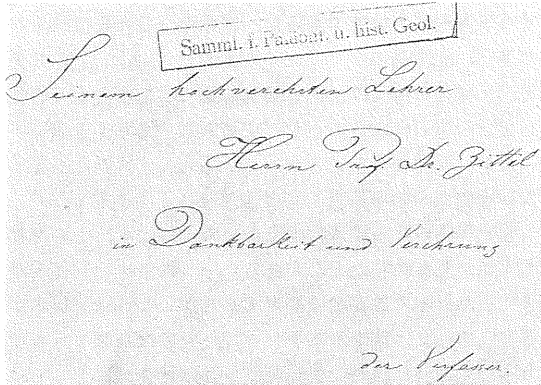 Samml. f. Paläont. u. hist. Geol.
Seinem hochverehrten Lehrer
Herrn Prof Dr. Zittel
in Dankbarkeit und Verehrung
der Verfasser.